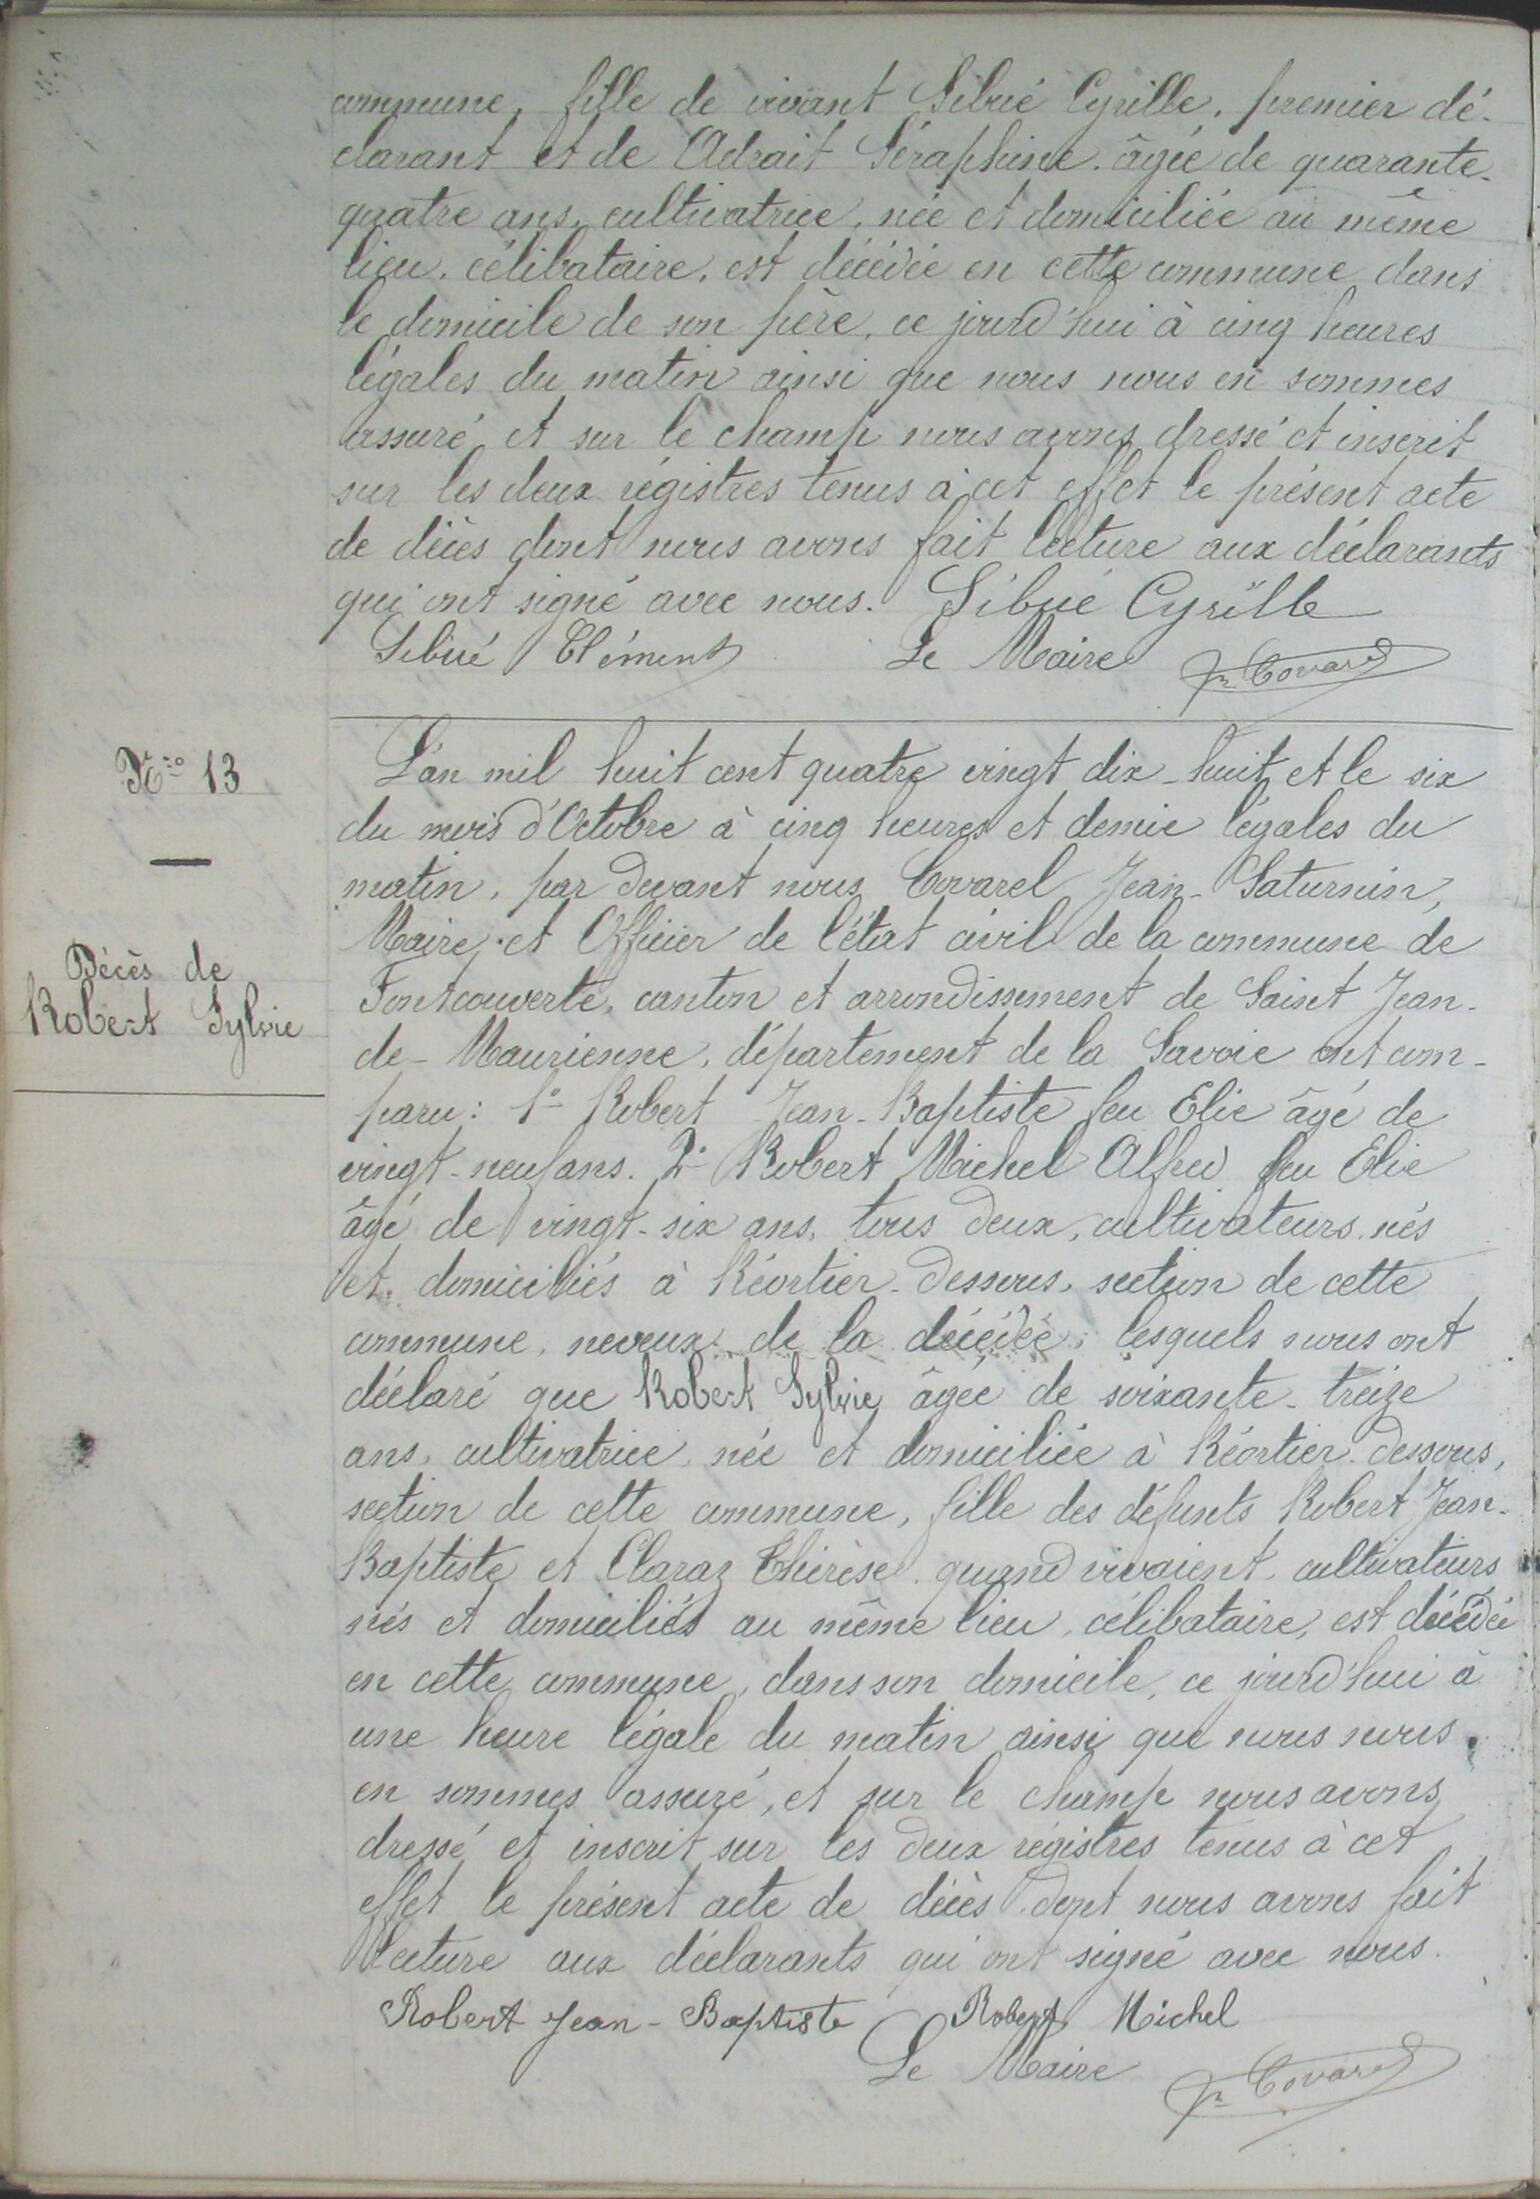 commune, fille de vivant Sibué Cyrille, premier dé-
clarant et de Adrait Séraphine, âgée de quarante-
quatre ans, cultivatrice, née et domiciliée au même
lieu, célibataire, est décédée en cette commune dans
le domicile de son père, ce jourd'hui à cinq heures
légales du matin ainsi que nous nous en sommes
assuré, et sur le champ nous avons dressé et inscrit
sur les deux régistres tenus à cet effet le présent acte
de décès dont nous avons fait lecture aux déclarants
qui ont signé avec nous. Sibué Cyrille
Sibué Clément Le Maire Jn Covarel
Nro 13
Décès de
Robert Sylvie
L'an mil huit cent quatre vingt dix-huit et le six
du mois d'Octobre à cinq heures et demie légales du
matin, par devant nous Covarel Jean-Saturnin,
Maire et Officier de l'état civil de la commune de
Fontcouverte, canton et arrondissement de Saint Jean-
de-Maurienne, département de la Savoie ont com-
paru: 1° Robert Jean-Baptiste feu Elie âgé de
vingt-neuf ans. 2° Robert Michel Alfred feu Elie
âgé de vingt-six ans, tous deux, cultivateurs, nés
et domiciliés à Réortier-dessous, section de cette
commune, neveux de la décédée; lesquels nous ont
déclaré que Robert Sylvie âgée de soixante-treize
ans, cultivatrice, née et domiciliée à Réortier-dessous,
section de cette commune, fille des défunts Robert Jean-
Baptiste et Claraz Thérèse quand vivaient, cultivateurs
nés et domiciliés au même lieu, célibataire, est décédée
en cette commune, dans son domicile, ce jourd'hui à
une heure légale du matin ainsi que nous nous
en sommes assuré, et sur le champ nous avons
dressé et inscrit sur les deux régistres tenus à cet
effet le présent acte de décès dont nous avons fait
lecture aux déclarants qui ont signé avec nous.
Robert Jean-Baptiste Robert Michel
Le Maire Jn Covarel